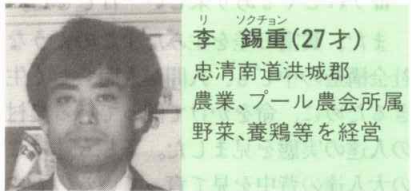 リ ソクチョン
李 錫重(27才)
忠清南道洪城郡
農業、プール農会所属
野菜、養鶏等を経営